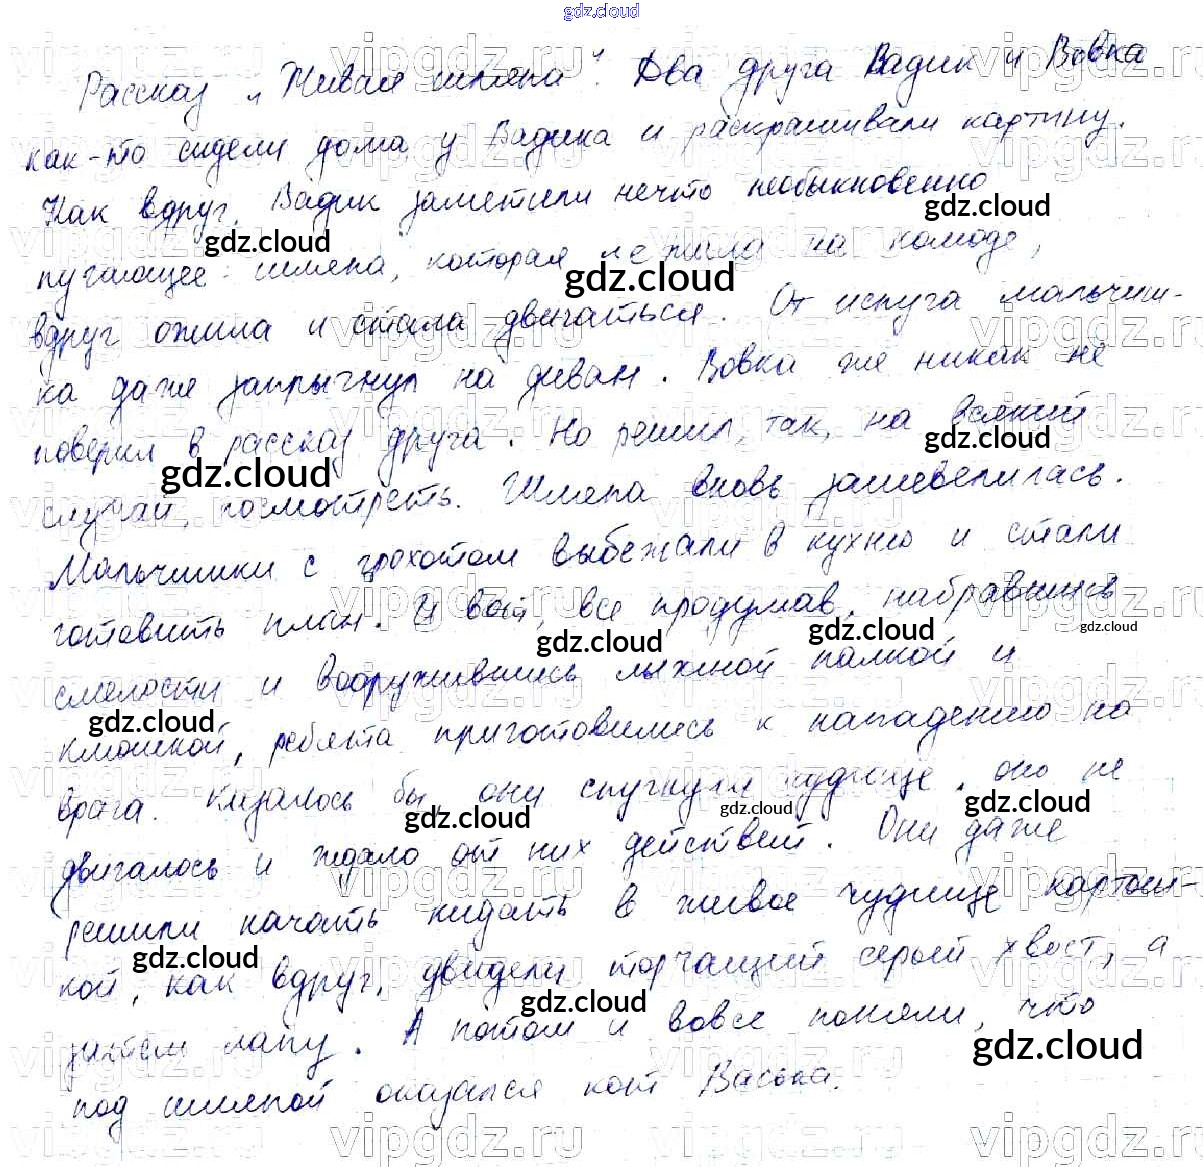 gdz.cloud
Рассказ „Живая шляпа“. Два друга Вадик и Вовка
как-то сидели дома у Вадика и раскрашивали картину.
Как вдруг, Вадик заметили нечто необыкновенно
пугающее: шляпа, которая лежала на комоде,
вдруг ожила и стала двигаться. От испуга мальчиш-
ка даже запрыгнул на диван. Вовка же никак не
поверил в рассказ друга. Но решил, так, на всякий
случай, посмотреть. Шляпа вновь зашевелилась.
Мальчишки с грохотом выбежали в кухню и стали
готовить план. И вот, все продумав, набравшись
смелости и вооружившись лыжной палкой и
клюшкой, ребята приготовились к нападению на
врага. Казалось бы, они спугнули чудище, оно не
двигалось и ждало от них действий. Они даже
решили начать кидать в живое чудище картош-
кой, как вдруг, увидели торчащий серый хвост, а
затем лапу. А потом и вовсе поняли, что
под шляпой оказался кот Васька.